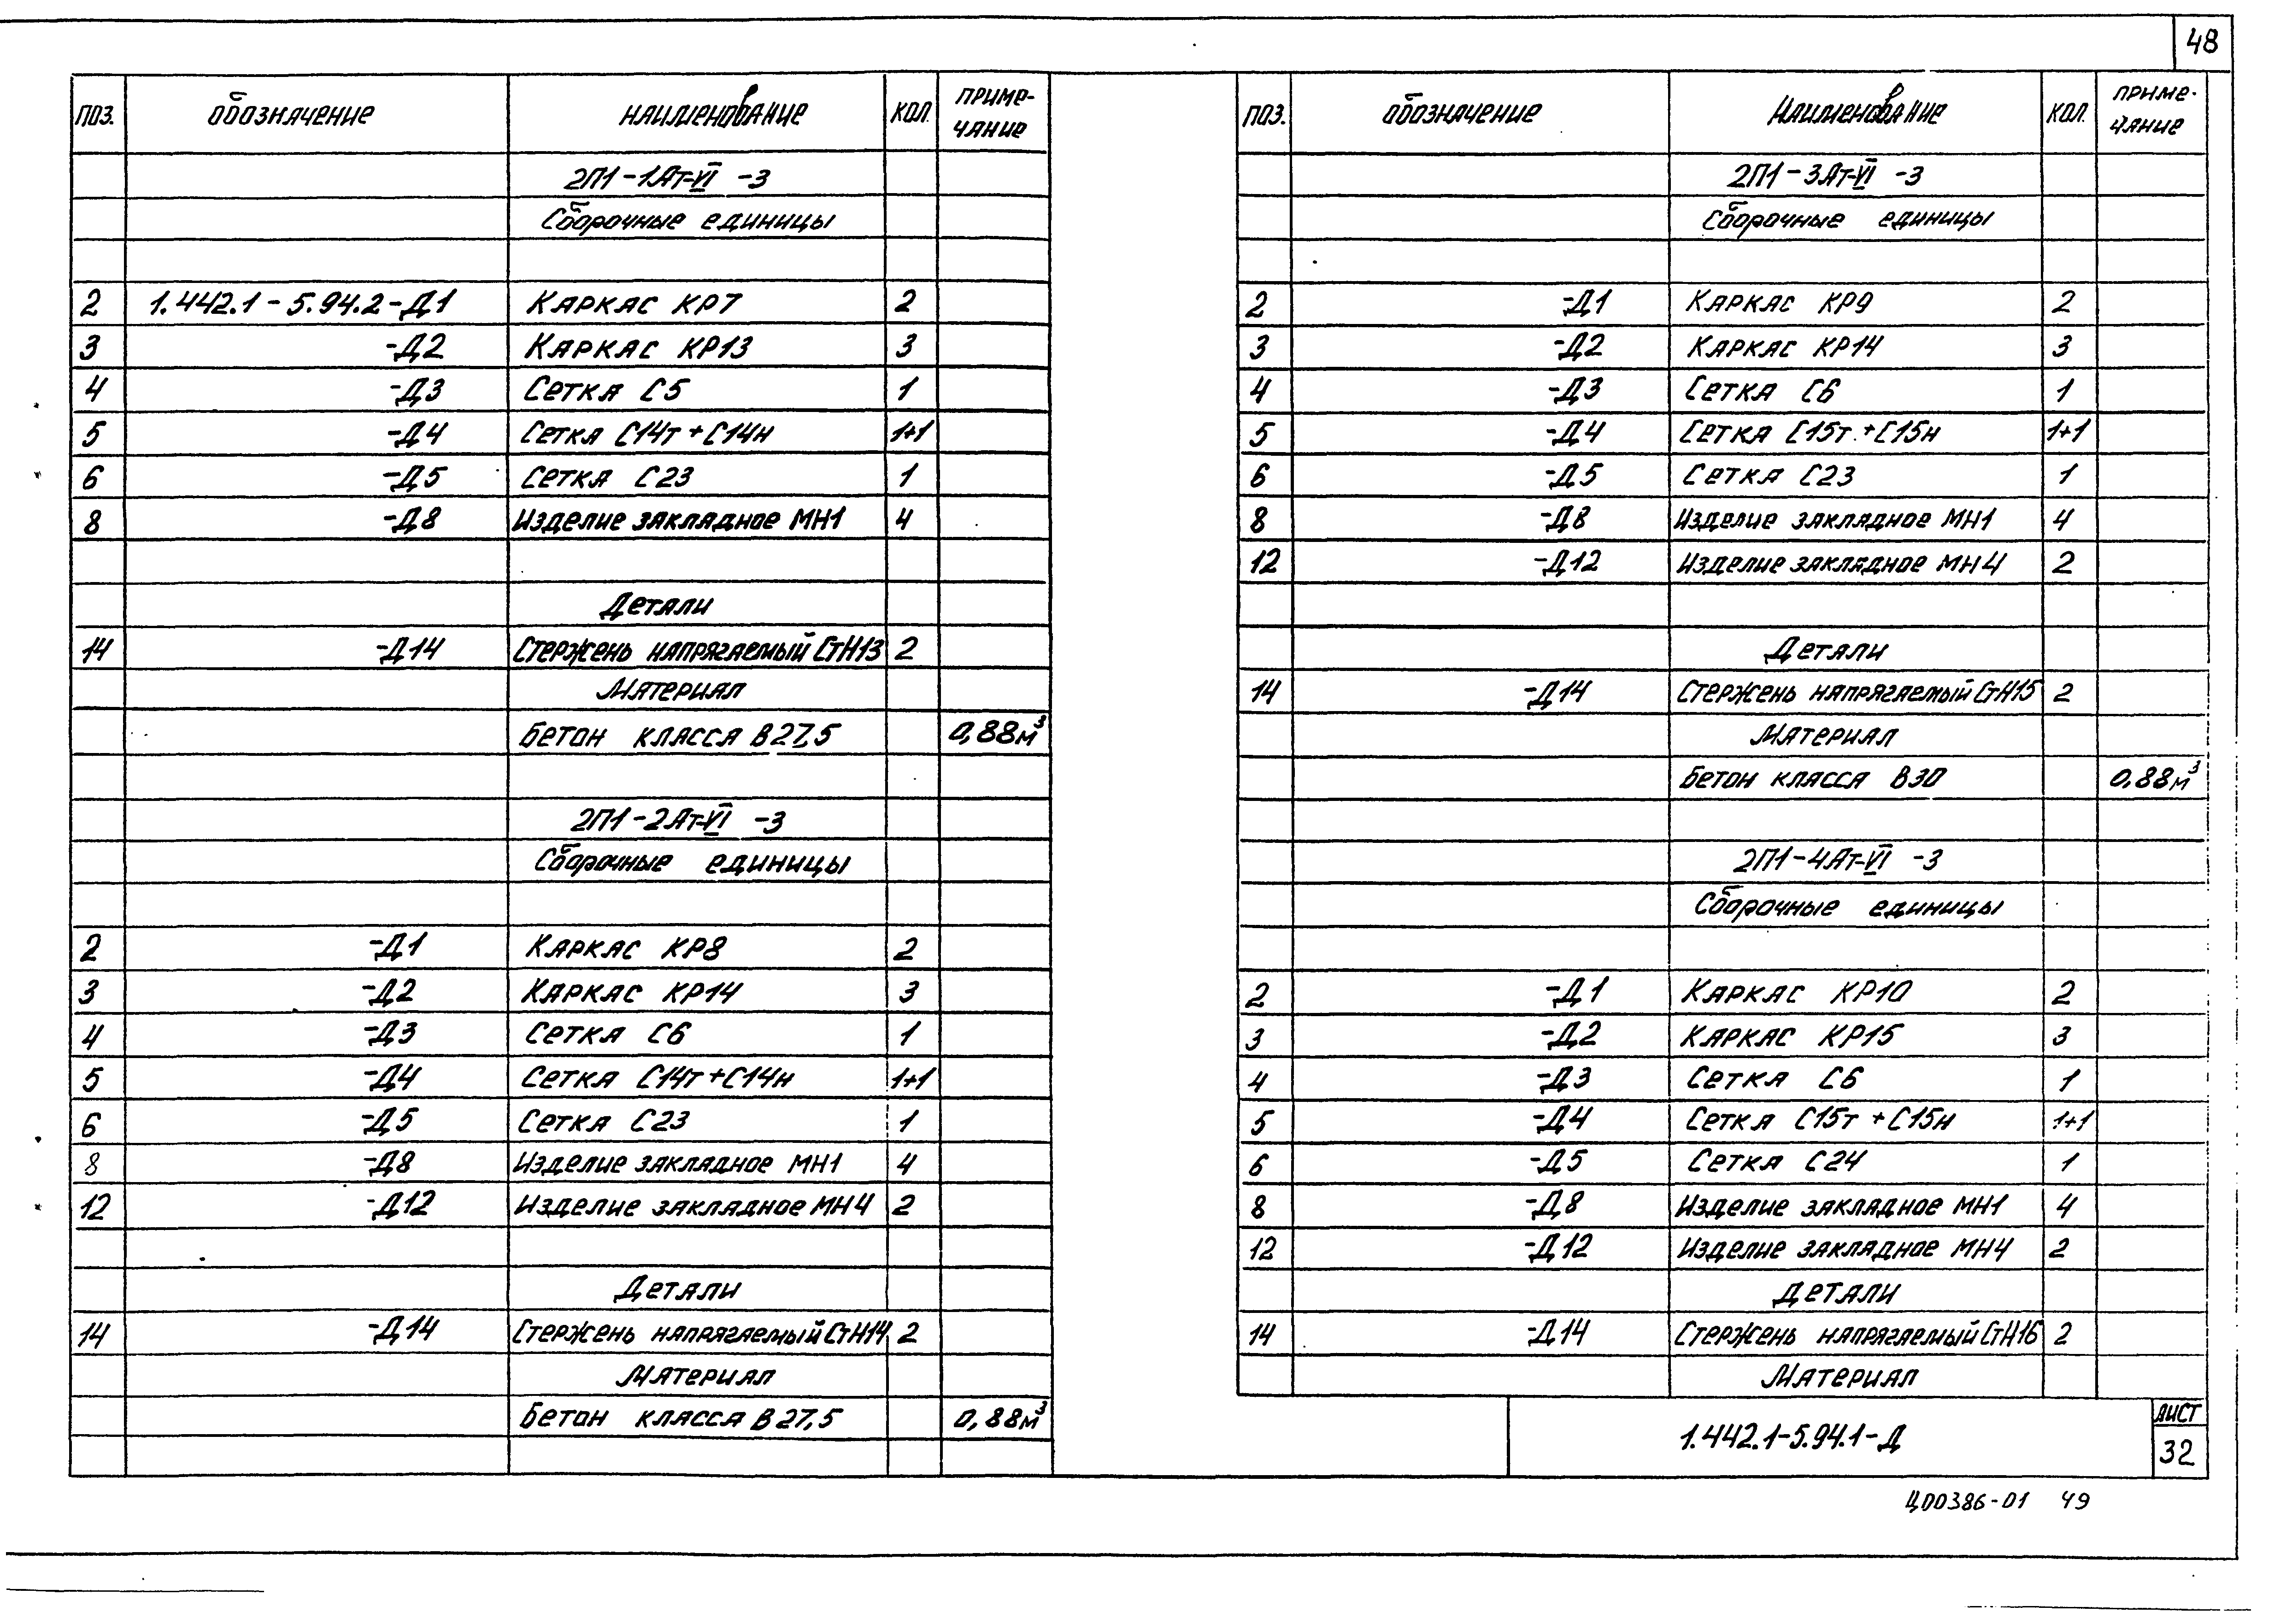 48
поз. обозначение наименование кол. приме-
чание
2П1-1Ат-VI -3
Сборочные единицы
2 1.442.1-5.94.2-Д1 Каркас КР7 2
3 -Д2 Каркас КР13 3
4 -Д3 Сетка С5 1
5 -Д4 Сетка С14т+С14н 1+1
6 -Д5 Сетка С23 1
8 -Д8 Изделие закладное МН1 4
Детали
14 -Д14 Стержень напрягаемый СтН13 2
Материал
Бетон класса В27,5 0,88м³
2П1-2Ат-VI -3
Сборочные единицы
2 -Д1 Каркас КР8 2
3 -Д2 Каркас КР14 3
4 -Д3 Сетка С6 1
5 -Д4 Сетка С14т+С14н 1+1
6 -Д5 Сетка С23 1
8 -Д8 Изделие закладное МН1 4
12 -Д12 Изделие закладное МН4 2
Детали
14 -Д14 Стержень напрягаемый СтН14 2
Материал
Бетон класса В27,5 0,88м³
поз. обозначение наименование кол. приме-
чание
2П1-3Ат-VI -3
Сборочные единицы
2 -Д1 Каркас КР9 2
3 -Д2 Каркас КР14 3
4 -Д3 Сетка С6 1
5 -Д4 Сетка С15т+С15н 1+1
6 -Д5 Сетка С23 1
8 -Д8 Изделие закладное МН1 4
12 -Д12 Изделие закладное МН4 2
Детали
14 -Д14 Стержень напрягаемый СтН15 2
Материал
Бетон класса В30 0,88м³
2П1-4Ат-VI -3
Сборочные единицы
2 -Д1 Каркас КР10 2
3 -Д2 Каркас КР15 3
4 -Д3 Сетка С6 1
5 -Д4 Сетка С15т+С15н 1+1
6 -Д5 Сетка С24 1
8 -Д8 Изделие закладное МН1 4
12 -Д12 Изделие закладное МН4 2
Детали
14 -Д14 Стержень напрягаемый СтН16 2
Материал
1.442.1-5.94.1-Д
лист
32
Ц00386-01 49